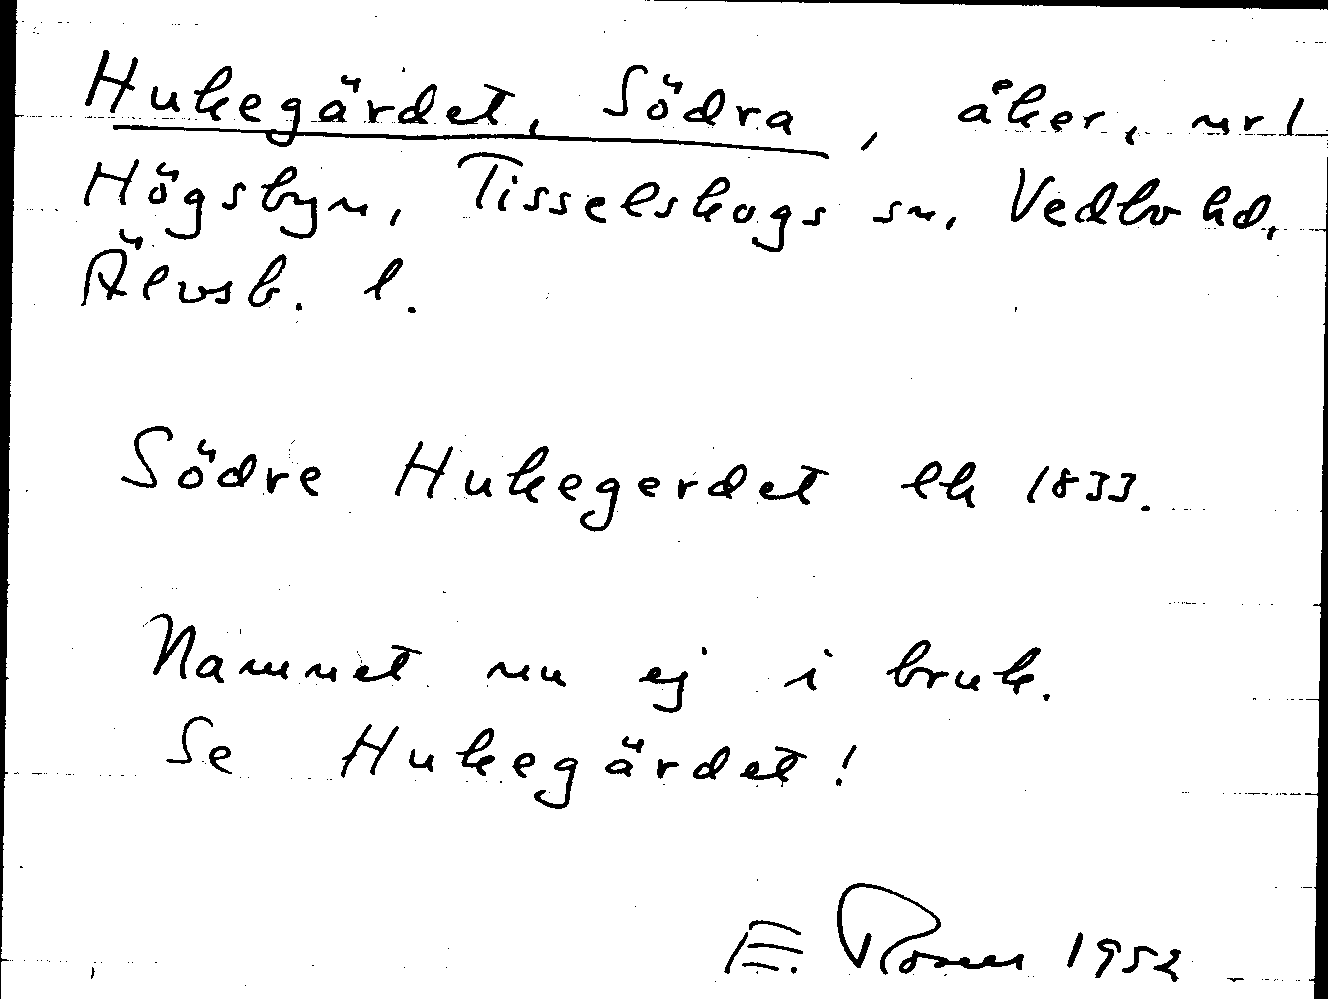 Hukegärdet, Södra, åker, nr 1
Högsbyn, Tisselskogs sn, Vedbo hd,
Älvsb. l.
Södre Hukegerdet lk 1833.
Namnet nu ej i bruk.
Se Hukegärdet!
E. Rosell 1952